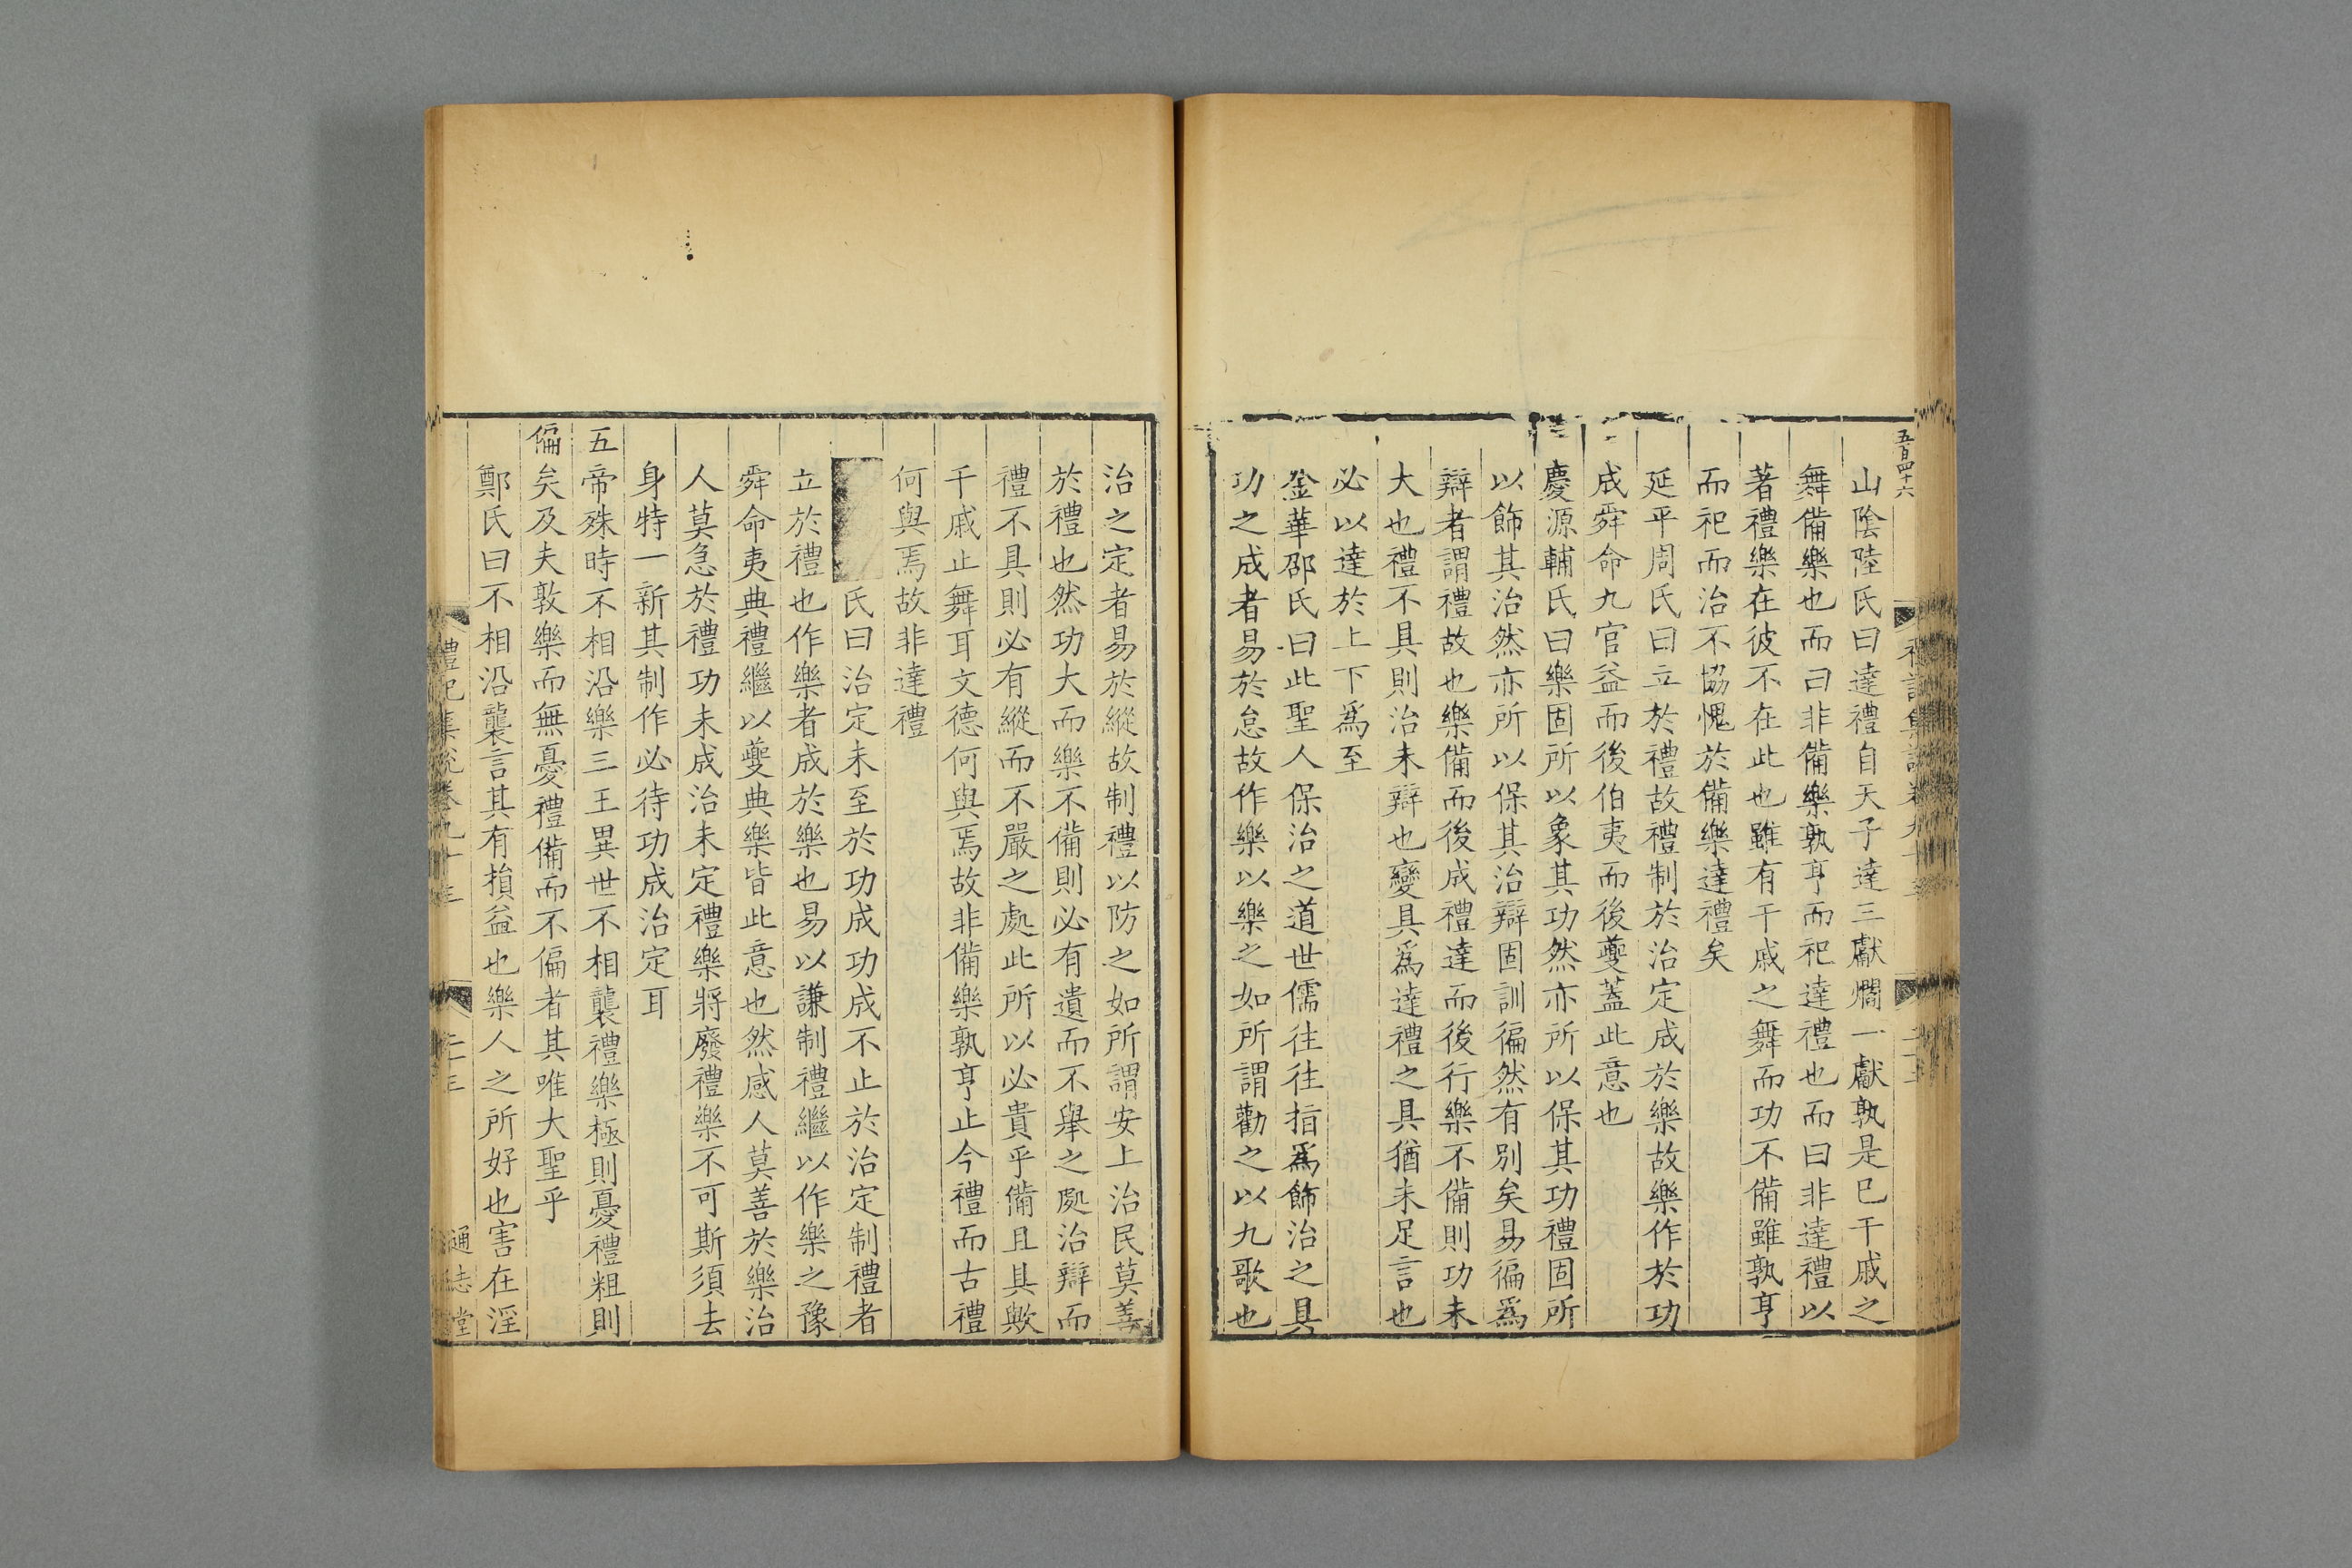 五百四十六
山陰陸氏曰達禮自天子達三獻爓一獻孰是巳干戚之
舞備樂也而曰非備樂孰亨而祀達禮也而曰非達禮以
著禮樂在彼不在此也雖有干戚之舞而功不備雖孰亨
而祀而治不協愧於備樂達禮矣
延平周氏曰立於禮故禮制於治定成於樂故樂作於功
成舜命九官益而後伯夷而後夔蓋此意也
慶源輔氏曰樂固所以象其功然亦所以保其功禮固所
以飾其治然亦所以保其治辯固訓徧然有別矣易徧爲
辯者謂禮故也樂備而後成禮達而後行樂不備則功未
大也禮不具則治未辯也變具爲達禮之具猶未足言也
必以達於上下爲至
金華邵氏曰此聖人保治之道世儒往往指爲飾治之具
功之成者易於怠故作樂以樂之如所謂勸之以九歌也
治之定者易於縱故制禮以防之如所謂安上治民莫善
於禮也然功大而樂不備則必有遺而不舉之處治辯而
禮不具則必有縱而不嚴之處此所以必貴乎備且具歟
干戚止舞耳文德何與焉故非備樂孰亨止今禮而古禮
何與焉故非達禮
氏曰治定未至於功成功成不止於治定制禮者
立於禮也作樂者成於樂也易以謙制禮繼以作樂之豫
舜命夷典禮繼以夔典樂皆此意也然感人莫善於樂治
人莫急於禮功未成治未定禮樂將廢禮樂不可斯須去
身特一新其制作必待功成治定耳
五帝殊時不相沿樂三王異世不相襲禮樂極則憂禮粗則
偏矣及夫敦樂而無憂禮備而不偏者其唯大聖乎
鄭氏曰不相沿襲言其有損益也樂人之所好也害在淫
禮記集說卷九十三 二十三 通志堂